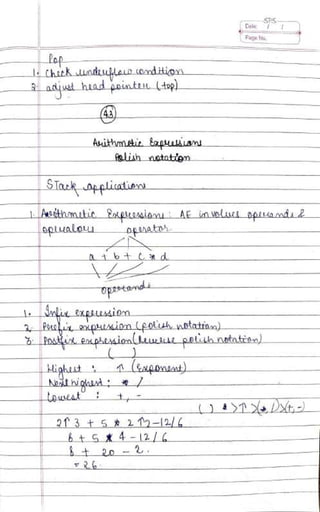 Date: 5/5/
Page No.
Pop
1. Check underflow condition
2. adjust head pointer (top)
43
Arithmetic Expressions
Polish notation
Stack applications
1. Arithmetic Expressions: AE involves operands &
operators
operator
a + b + c * d
operands
1. Infix expression
2. Prefix expression (polish notation)
3. Postfix expression (reverse polish notation)
( )
Highest : ↑ (Exponent)
Next highest : * /
Lowest : +, -
( ) > ↑ > (*, /) > (+, -)
2↑3 + 5 * 2↑2 - 12/6
6 + 5 * 4 - 12/6
8 + 20 - 2.
= 26.